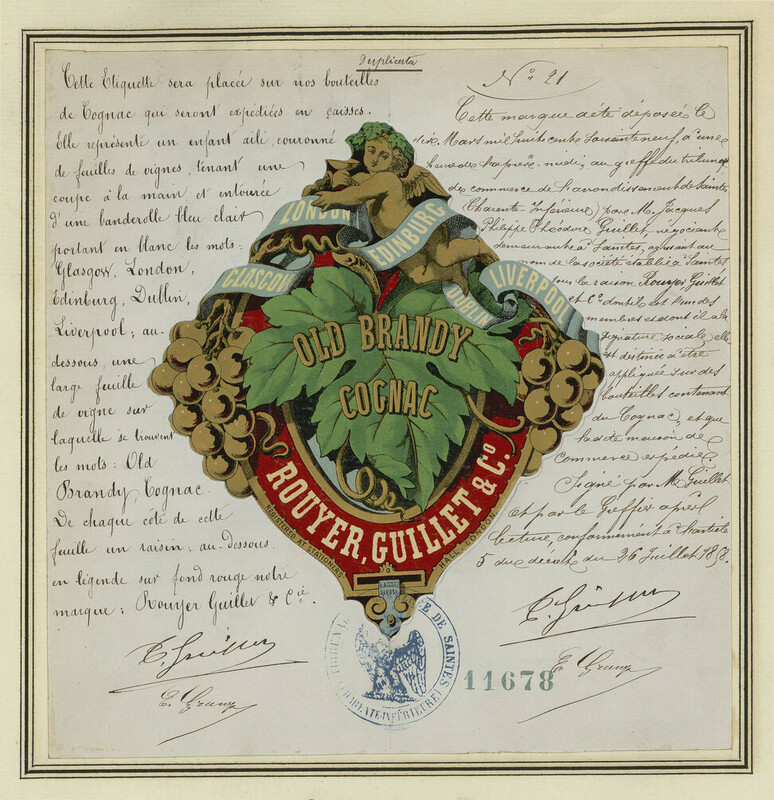 Duplicata
Cette Etiquette sera placée sur nos bouteilles
de Cognac qui seront expédiées en caisses.
Elle représente un enfant ailé, couronné
de feuilles de vignes, tenant une
coupe à la main et entourée
d'une banderolle bleu clair
portant en blanc les mots:
Glasgow, London,
Edinburg, Dublin,
Liverpool; au-
dessous, une
large feuille
de vigne sur
laquelle se trouvent
les mots: Old
Brandy Cognac.
De chaque côté de cette
feuille un raisin; au-dessous
en légende sur fond rouge notre
marque: Rouyer Guillet & Cie.
No 21
Cette marque a été déposée le
Mars mil huit cent soixante neuf, à une
heure de après-midi, au greffe du tribunal
de commerce de l'arrondissement de Saintes
Charente Inférieure) par M. Jacques
Philippe Théodore Guillet, négociant
demeurant à Saintes, agissant au
nom de la société établie à Saintes
sous la raison Rouyer Guillet
et Ce dont il est l'un des
membres et dont il a la
signature sociale; elle
est destinée à être
appliquée sur des
bouteilles contenant
du Cognac, et que
ladite maison de
commerce expédie.
Signé par M. Guillet
et par le Greffier après
lecture, conformément à l'article
5 du décret du 26 Juillet 1858.
LONDON
EDINBURG
GLASGOW
DUBLIN
LIVERPOOL
OLD BRANDY
COGNAC
ROUYER, GUILLET & Co.
REGISTERED AT STATIONERS' HALL LONDON
DE SAINTES
11678